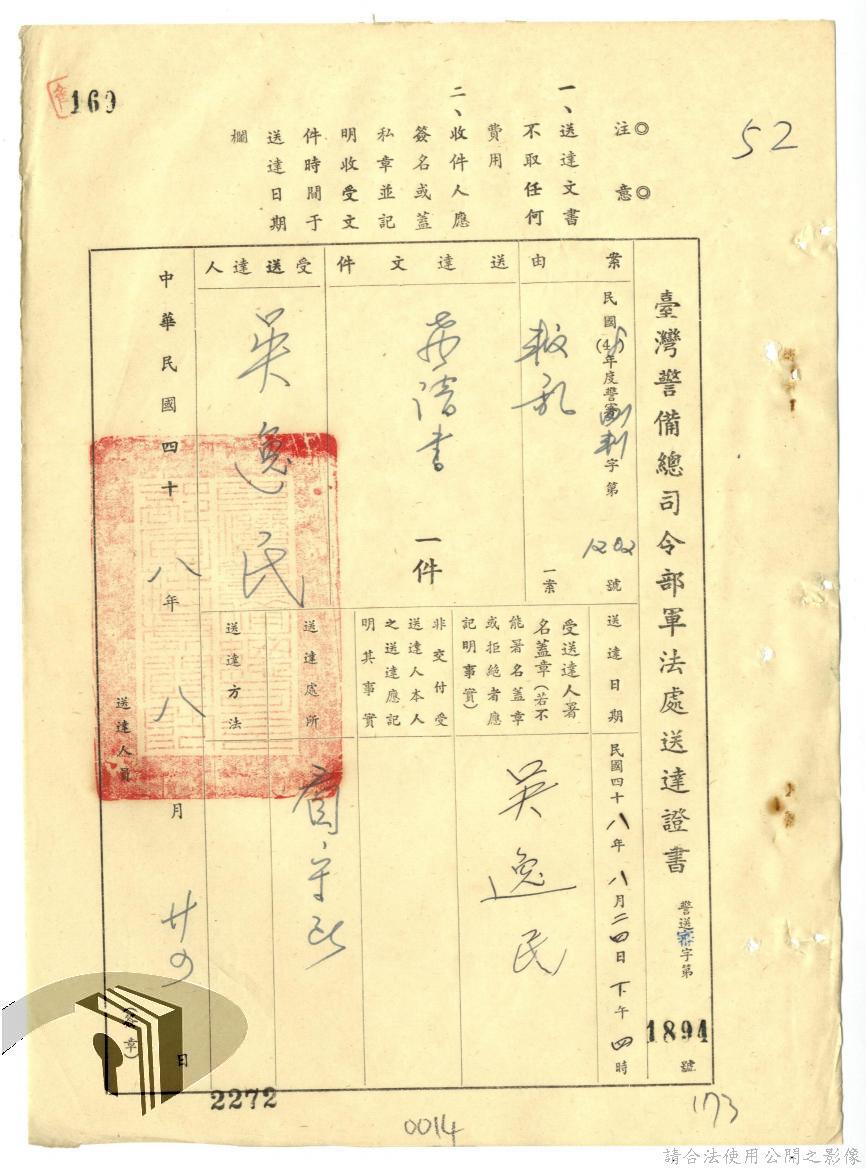 169
52
◎注意◎
一、送達文書
不取任何
費用
二、收件人應
簽名或蓋
私章並記
明收受文
件時間于
送達日期
欄
臺灣警備總司令部軍法處送達證書
警送審字第
1894
號
案由
民國(48)年度警審
字第
1202
號
叛亂
一案
送達文件
書
一件
受送達人
吳逸民
送達日期
民國四十八年八月二四日下午四時
受送達人署
名蓋章(若不
能署名蓋章
或拒絕者應
記明事實)
吳逸民
非交付受
送達人本人
之送達應記
明其事實
送達處所
看守所
送達方法
中華民國四十八年八月廿四日
送達人員
(簽章)
2272
0014
173
請合法使用公開之影像